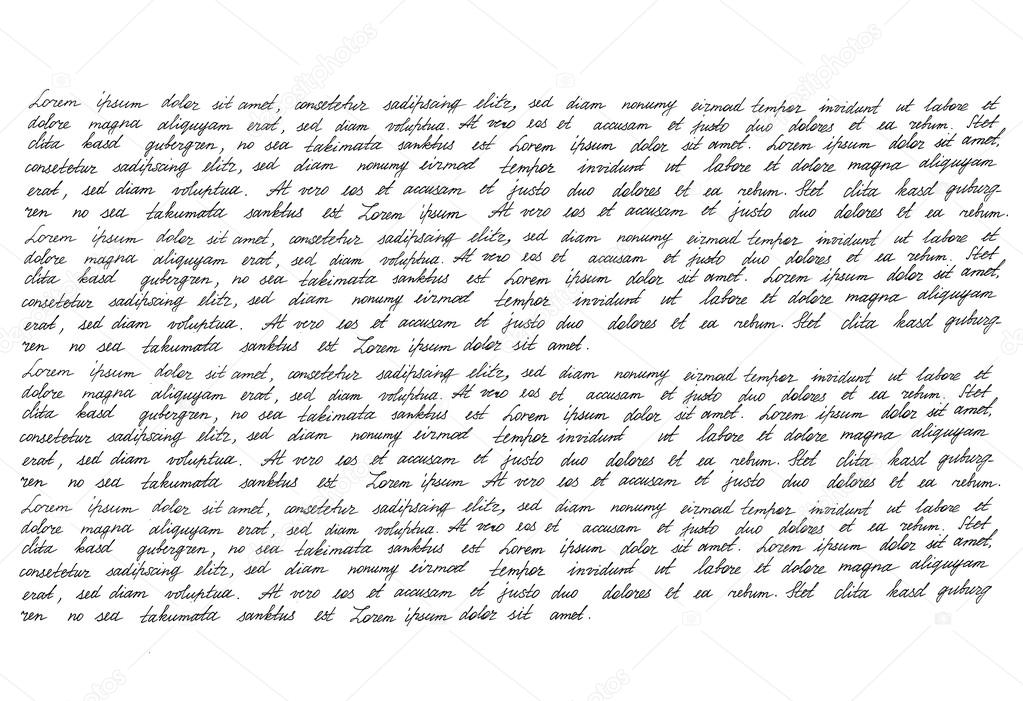 Lorem ipsum dolor sit amet, consetetur sadipscing elitr, sed diam nonumy eirmod tempor invidunt ut labore et
dolore magna aliquyam erat, sed diam voluptua. At vero eos et accusam et justo duo dolores et ea rebum. Stet
clita kasd gubergren, no sea takimata sanktus est Lorem ipsum dolor sit amet. Lorem ipsum dolor sit amet,
consetetur sadipscing elitr, sed diam nonumy eirmod tempor invidunt ut labore et dolore magna aliquyam
erat, sed diam voluptua. At vero eos et accusam et justo duo dolores et ea rebum. Stet clita kasd guburg-
ren no sea takumata sanktus est Lorem ipsum At vero eos et accusam et justo duo dolores et ea rebum.
Lorem ipsum dolor sit amet, consetetur sadipscing elitr, sed diam nonumy eirmod tempor invidunt ut labore et
dolore magna aliquyam erat, sed diam voluptua. At vero eos et accusam et justo duo dolores et ea rebum. Stet
clita kasd gubergren, no sea takimata sanktus est Lorem ipsum dolor sit amet. Lorem ipsum dolor sit amet,
consetetur sadipscing elitr, sed diam nonumy eirmod tempor invidunt ut labore et dolore magna aliquyam
erat, sed diam voluptua. At vero eos et accusam et justo duo dolores et ea rebum. Stet clita kasd guburg-
ren no sea takumata sanktus est Lorem ipsum dolor sit amet.
Lorem ipsum dolor sit amet, consetetur sadipscing elitr, sed diam nonumy eirmod tempor invidunt ut labore et
dolore magna aliquyam erat, sed diam voluptua. At vero eos et accusam et justo duo dolores et ea rebum. Stet
clita kasd gubergren, no sea takimata sanktus est Lorem ipsum dolor sit amet. Lorem ipsum dolor sit amet,
consetetur sadipscing elitr, sed diam nonumy eirmod tempor invidunt ut labore et dolore magna aliquyam
erat, sed diam voluptua. At vero eos et accusam et justo duo dolores et ea rebum. Stet clita kasd guburg
ren no sea takumata sanktus est Lorem ipsum At vero eos et accusam et justo duo dolores et ea rebum.
Lorem ipsum dolor sit amet, consetetur sadipscing elitr, sed diam nonumy eirmod tempor invidunt ut labore et
dolore magna aliquyam erat, sed diam voluptua. At vero eos et accusam et justo duo dolores et ea rebum. Stet
clita kasd gubergren, no sea takimata sanktus est Lorem ipsum dolor sit amet. Lorem ipsum dolor sit amet,
consetetur sadipscing elitr, sed diam nonumy eirmod tempor invidunt ut labore et dolore magna aliquyam
erat, sed diam voluptua. At vero eos et accusam et justo duo dolores et ea rebum. Stet clita kasd guburg
ren no sea takumata sanktus est Lorem ipsum dolor sit amet.